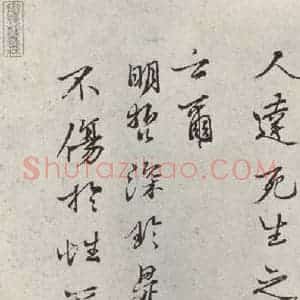 人達死生之
云爾
明哲深於是
不傷於性
ShufaZidao.COM